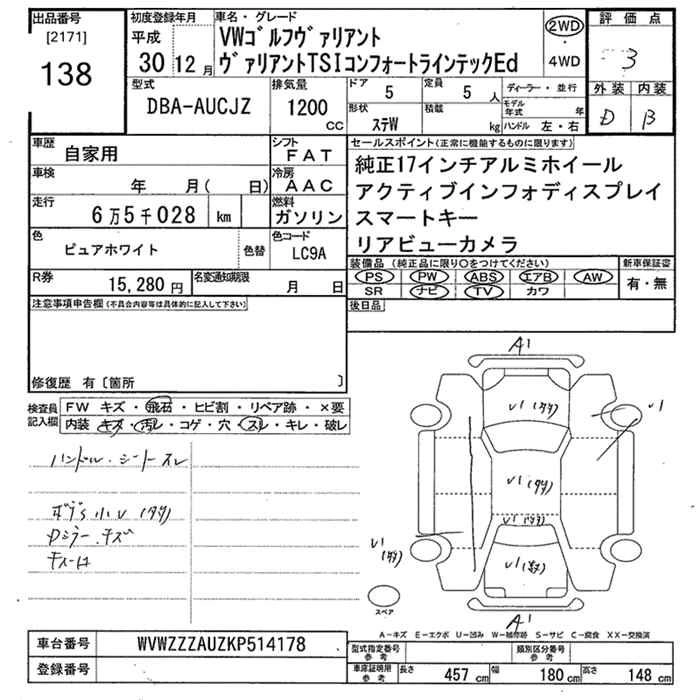 出品番号
[2171]
138
初度登録年月
平成
30 12 月
車名・グレード
VWゴルフヴァリアント
ヴァリアントTSIコンフォートラインテックEd
2WD
4WD
評価点
3
外装 内装
D B
型式
DBA-AUCJZ
排気量
1200
CC
ドア
5
定員
5 人
形状
ステW
積載
kg
ディーラー・並行
モデル年式 年
ハンドル 左・右
車歴
自家用
シフト
FAT
車検
年 月( 日)
冷房
AAC
走行
6万5千028 km
燃料
ガソリン
色
ピュアホワイト
色替
色コード
LC9A
R券
15,280 円
名変通知期限
月 日
セールスポイント(正常に機能するものに限ります)
純正17インチアルミホイール
アクティブインフォディスプレイ
スマートキー
リアビューカメラ
装備品(純正品に限り○をつけてください)
PS PW ABS エアB AW
SR ナビ TV カワ
新車保証書
有・無
後日品
注意事項申告欄(不具合内容等は具体的に記入して下さい)
修復歴 有〔箇所 〕
検査員
記入欄
FW キズ・飛石・ヒビ割・リペア跡・×要
内装 キズ・汚レ・コゲ・穴・スレ・キレ・破レ
ハンドル・シートスレ
ボデS小U(タタ)
Dミラー.キズ
A1
U1(タタ)
U1
U1(タタ)
U1(タタ)
U1(タタ)
U1(タタ)
A1
スペア
A-キズ E-エクボ U-凹み W-補修跡 S-サビ C-腐食 XX-交換済
車台番号
WVWZZZAUZKP514178
登録番号
型式指定番号
参考
類別区分番号
参考
車庫証明用
参考
長さ 457 cm 幅 180 cm 高さ 148 cm